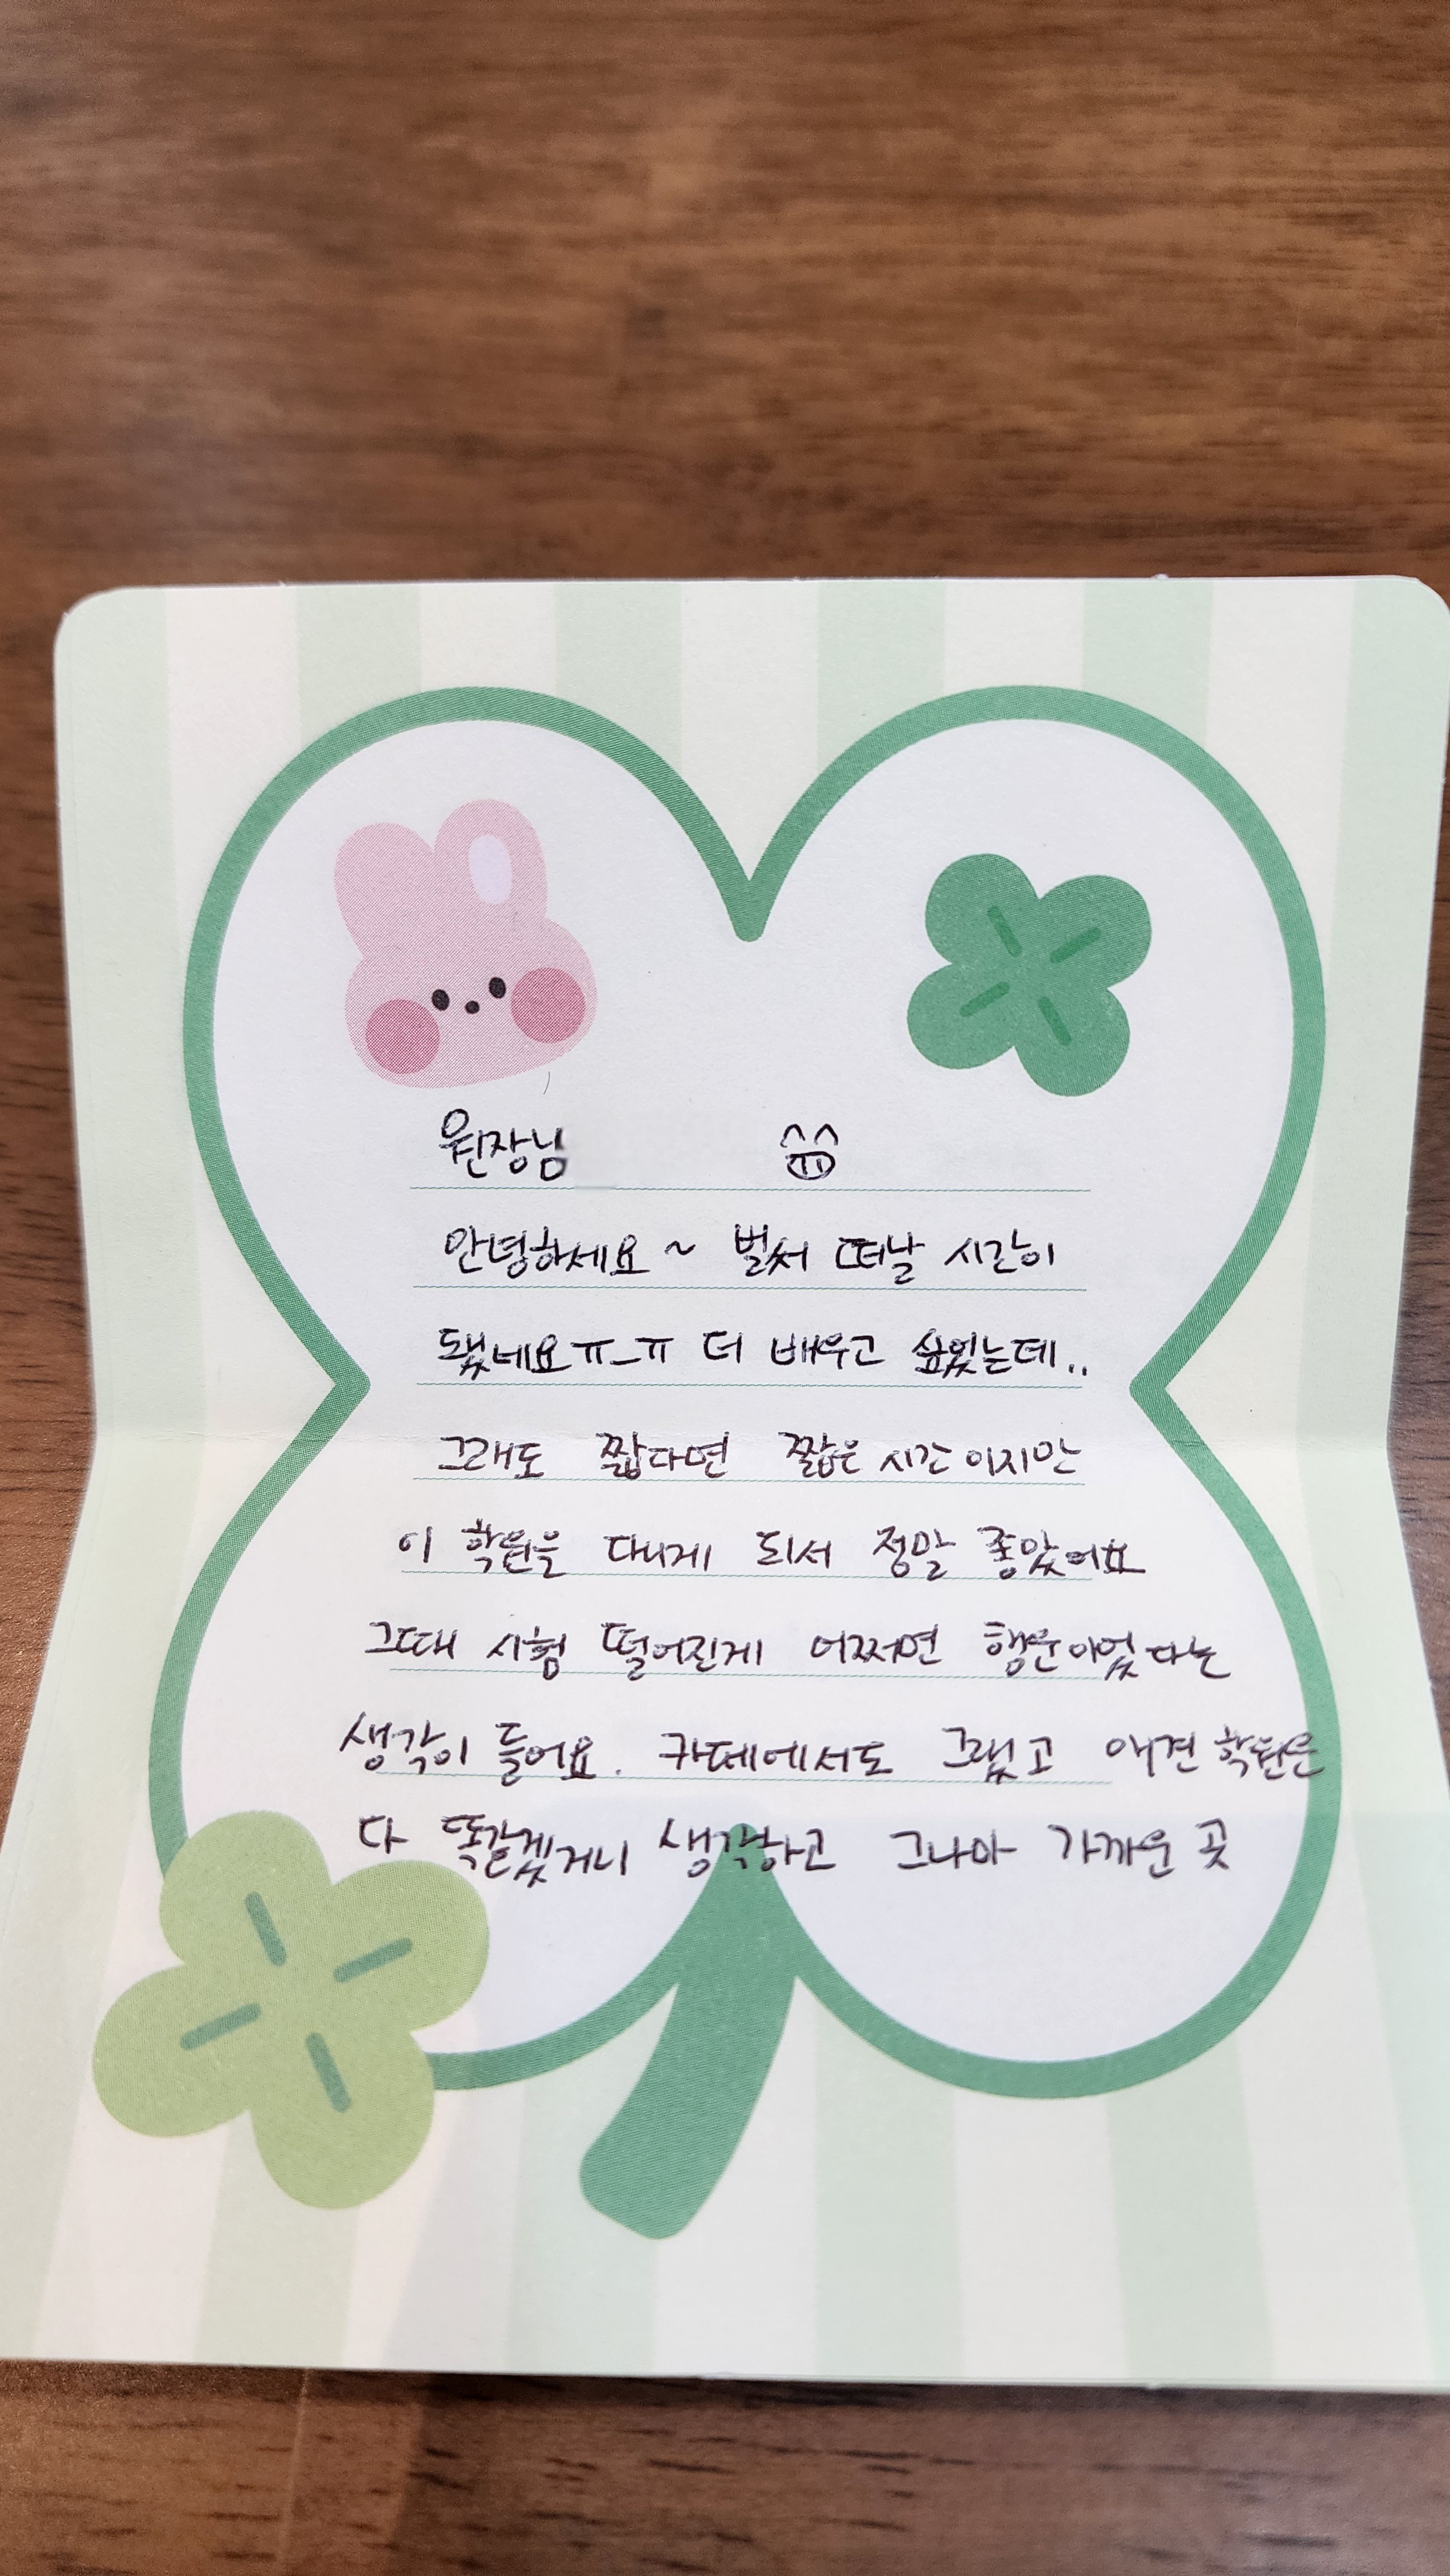 원장님
안녕하세요~ 벌써 떠날 시간이
됐네요ㅠ_ㅠ 더 배우고 싶었는데..
그래도 짧다면 짧은 시간이지만
이 학원을 다니게 되서 정말 좋았어요
그때 시험 떨어진게 어쩌면 행운이었다는
생각이 들어요. 카페에서도 그랬고 애견학원은
다 똑같겠거니 생각하고 그나마 가까운 곳